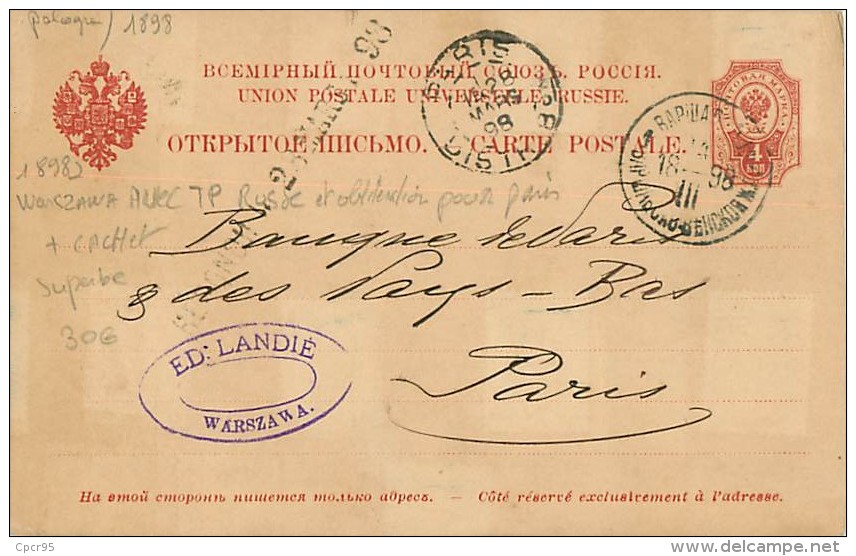 Pologne) 1898
98
ВСЕМIРНЫЙ ПОЧТОВЫЙ СОЮЗЪ. РОССIЯ.
UNION POSTALE UNIVERSELLE. RUSSIE.
ОТКРЫТОЕ ПИСЬМО. — CARTE POSTALE.
ПОЧТОВАЯ МАРКА
4 КОП
PARIS
28
MARS
98
DISTR
ВАРШАВА
18 98
III
1898)
WARSZAWA AVEC TP Russe et oblitération pour Paris
+ CACHET
Superbe
30€
Banque de Paris
& des Pays-Bas
Paris
ED: LANDIÉ
WARSZAWA.
На этой сторонѣ пишется только адресъ. — Côté réservé exclusivement à l'adresse.
Cpcr95
www.delcampe.net